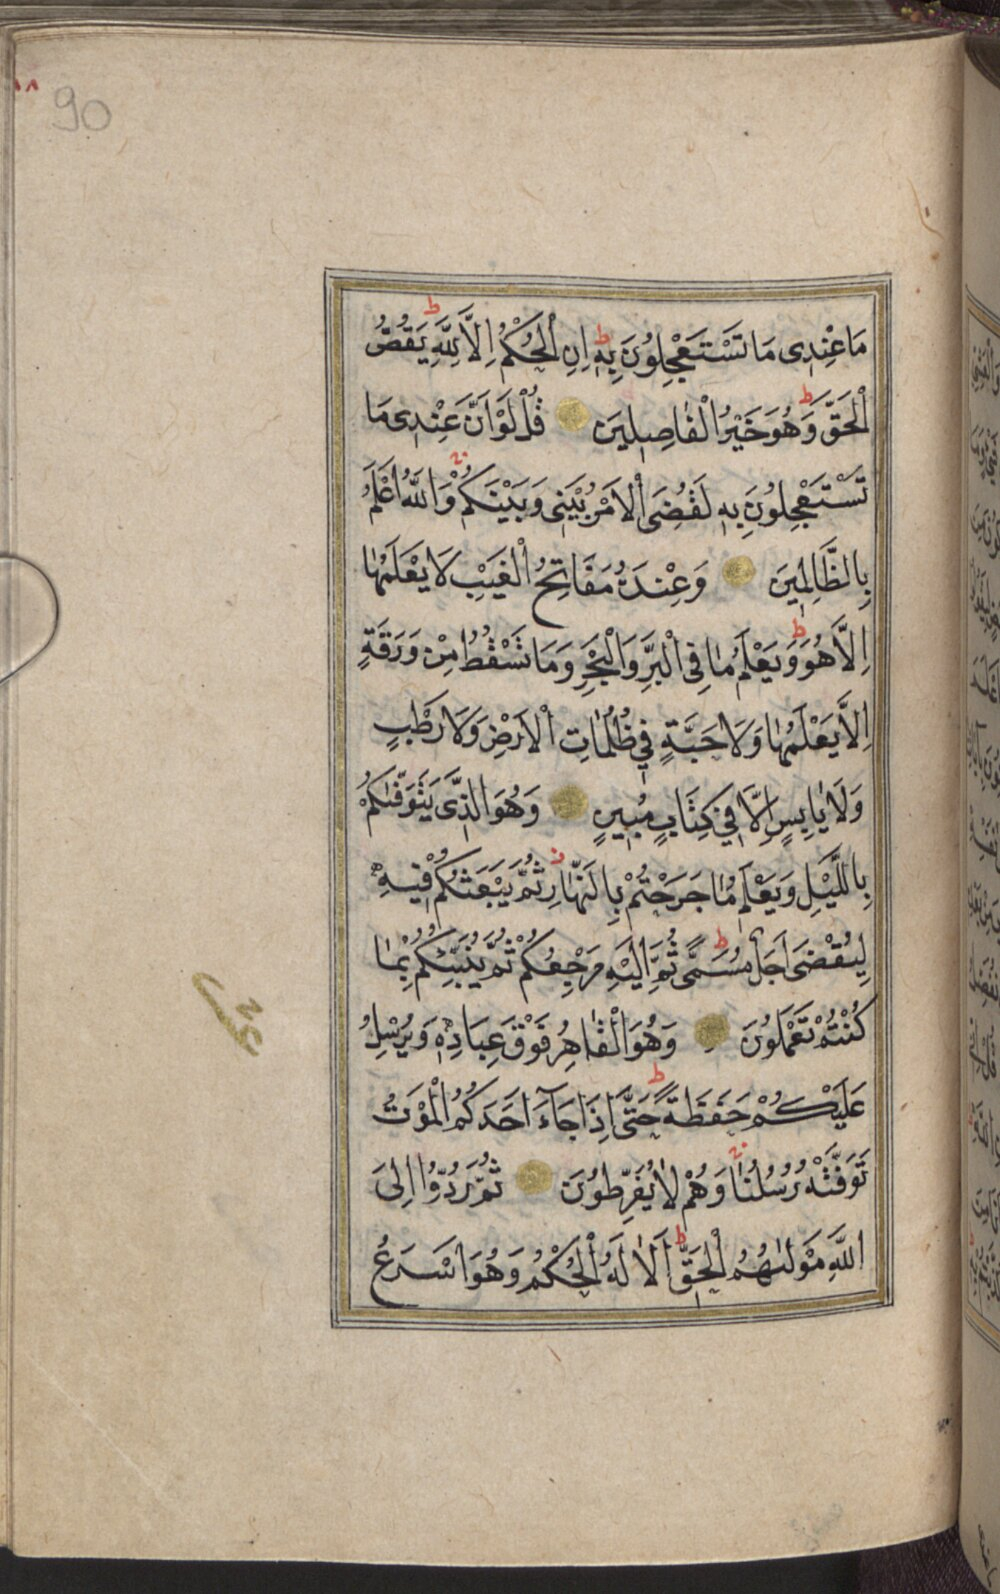 ٨٨
90
مَا عِنْدِى مَا تَسْتَعْجِلُونَ بِهِ ط اِنِ الْحُكْمُ اِلَّا لِلَّهِ ط يَقُصُّ
الْحَقَّ ط وَهُوَ خَيْرُ الْفَاصِلِينَ قُلْ لَوْ اَنَّ عِنْدِى مَا
تَسْتَعْجِلُونَ بِهِ لَقُضِىَ الْاَمْرُ بَيْنِى وَبَيْنَكُمْ وَاللَّهُ اَعْلَمُ
بِالظَّالِمِينَ وَعِنْدَهُ مَفَاتِحُ الْغَيْبِ لَا يَعْلَمُهَا
اِلَّا هُوَ ط وَيَعْلَمُ مَا فِى الْبَرِّ وَالْبَحْرِ وَمَا تَسْقُطُ مِنْ وَرَقَةٍ
اِلَّا يَعْلَمُهَا وَلَا حَبَّةٍ فِي ظُلُمَاتِ الْاَرْضِ وَلَا رَطْبٍ
وَلَا يَابِسٍ اِلَّا فِي كِتَابٍ مُبِينٍ وَهُوَ الَّذِى يَتَوَفّٰيكُمْ
بِاللَّيْلِ وَيَعْلَمُ مَا جَرَحْتُمْ بِالنَّهَارِ ثُمَّ يَبْعَثُكُمْ فِيهِ
لِيُقْضَى اَجَلٌ مُسَمًّى ط ثُمَّ اِلَيْهِ مَرْجِعُكُمْ ثُمَّ يُنَبِّئُكُمْ بِمَا
كُنْتُمْ تَعْمَلُونَ وَهُوَ الْقَاهِرُ فَوْقَ عِبَادِهِ وَيُرْسِلُ
عَلَيْكُمْ حَفَظَةً ط حَتَّى اِذَا جَآءَ اَحَدَكُمُ الْمَوْتُ
تَوَفَّتْهُ رُسُلُنَا وَهُمْ لَا يُفَرِّطُونَ ثُمَّ رُدُّوا اِلَى
اللَّهِ مَوْلٰيهُمُ الْحَقِّ ط اَلَا لَهُ الْحُكْمُ وَهُوَ اَسْرَعُ